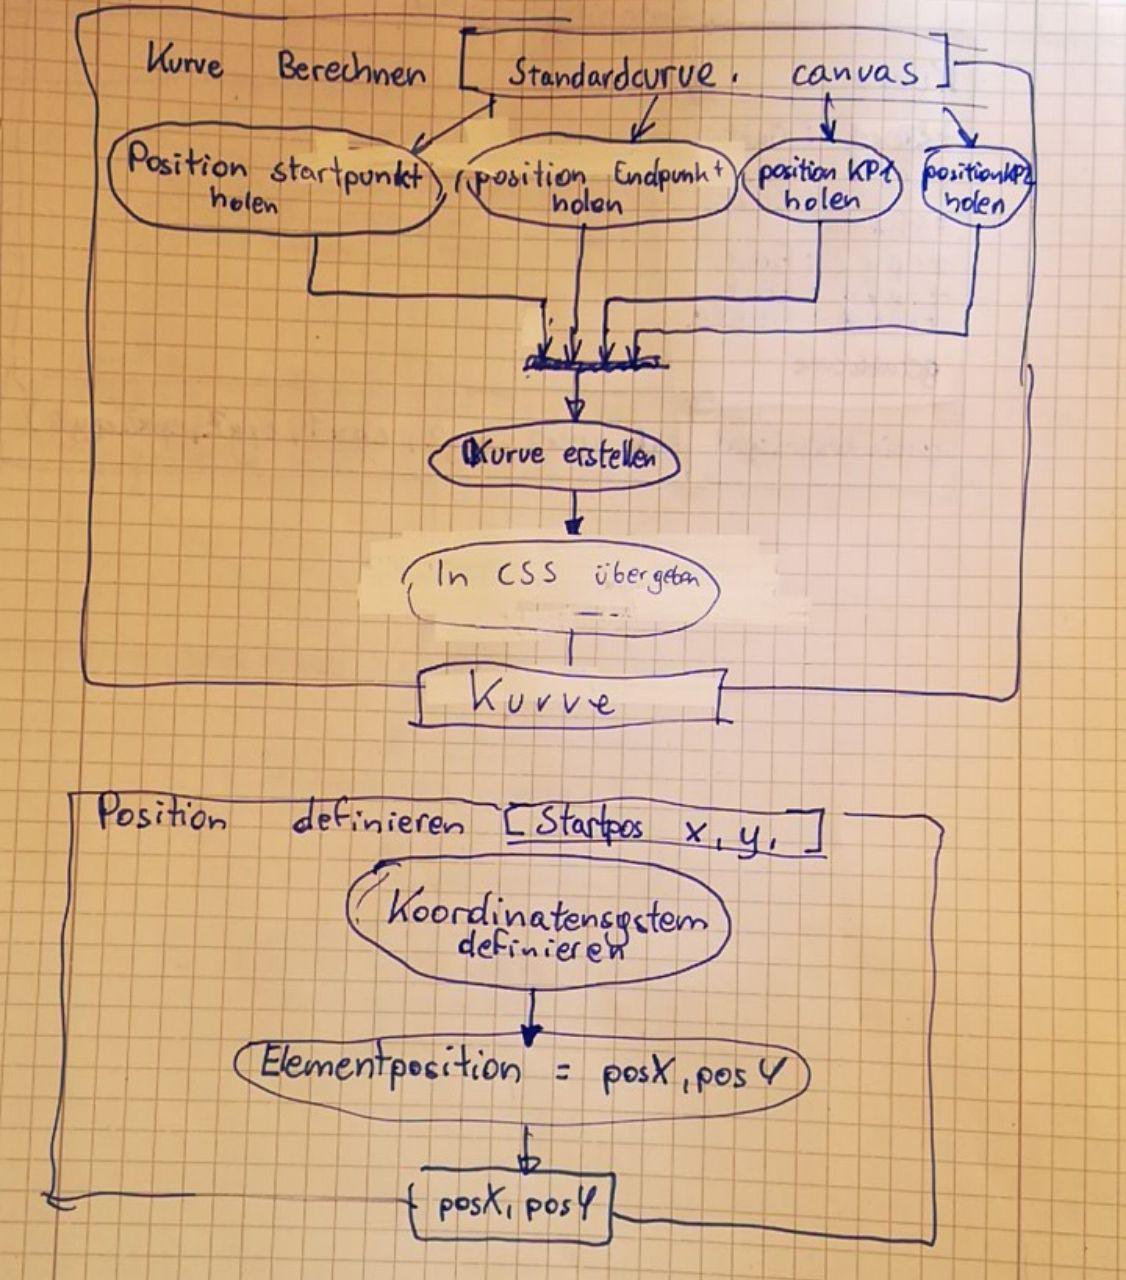 Kurve Berechnen [ Standardcurve. canvas ]
Position startpunkt
holen
position Endpunkt
holen
position KP1
holen
position KP2
holen
Kurve erstellen
In CSS übergeben
Kurve
Position definieren [ Startpos x, y, ]
Koordinatensystem
definieren
Elementposition = posX, posY
posX, posY